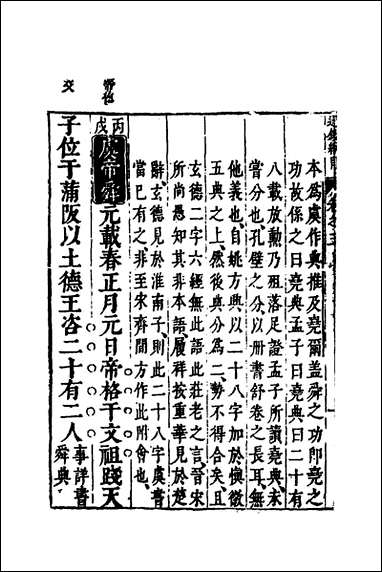 本爲虞作典推及堯爾蓋舜之功卽堯之
功故係之曰堯典孟子曰堯典曰二十有
八載放勳乃殂落足證孟子所讀堯典未
嘗分也孔壁之分以册書舒卷之長耳無
他義也、自姚方興以二十八字加於愼徽
五典之上、然後典分爲二、勢不得合矣、且
玄德二字六經無此語此莊老之言、晉宋
所尚愚知其非本語、履祥按重華見於楚
辭玄德見於淮南子、則此二十八字虞書
當已有之、非至宋齊間方作此附會也、
丙戌
虞帝舜元載春正月元日帝格于文祖踐天
子位于蒲阪以土德王咨二十有二人
事詳書
舜典